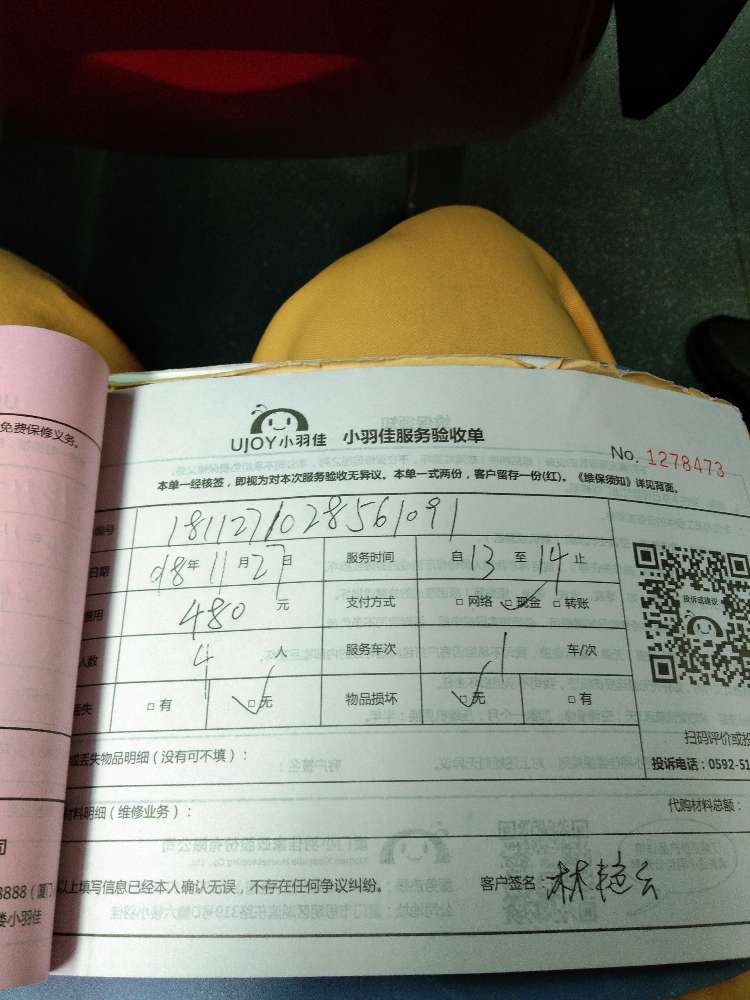 免费保修义务。
UJOY小羽佳 小羽佳服务验收单
No. 1278473
本单一经核签，即视为对本次服务验收无异议。本单一式两份，客户留存一份(红)。《维保须知》详见背面。
编号 181127102856 1091
日期 年 11 月 27 日 服务时间 自 13 至 14 止
费用 480 元 支付方式 □ 网络 ☑ 现金 □ 转账
人数 4 人 服务车次 1 车/次
丢失 □ 有 ☑ 无 物品损坏 ☑ 无 □ 有
投诉或建议
扫码评价或投
或丢失物品明细（没有可不填）：
投诉电话：0592-51
材料明细（维修业务）：
代购材料总额：
以上填写信息已经本人确认无误，不存在任何争议纠纷。 客户签名：林
司
8888（厦门
楼小羽佳